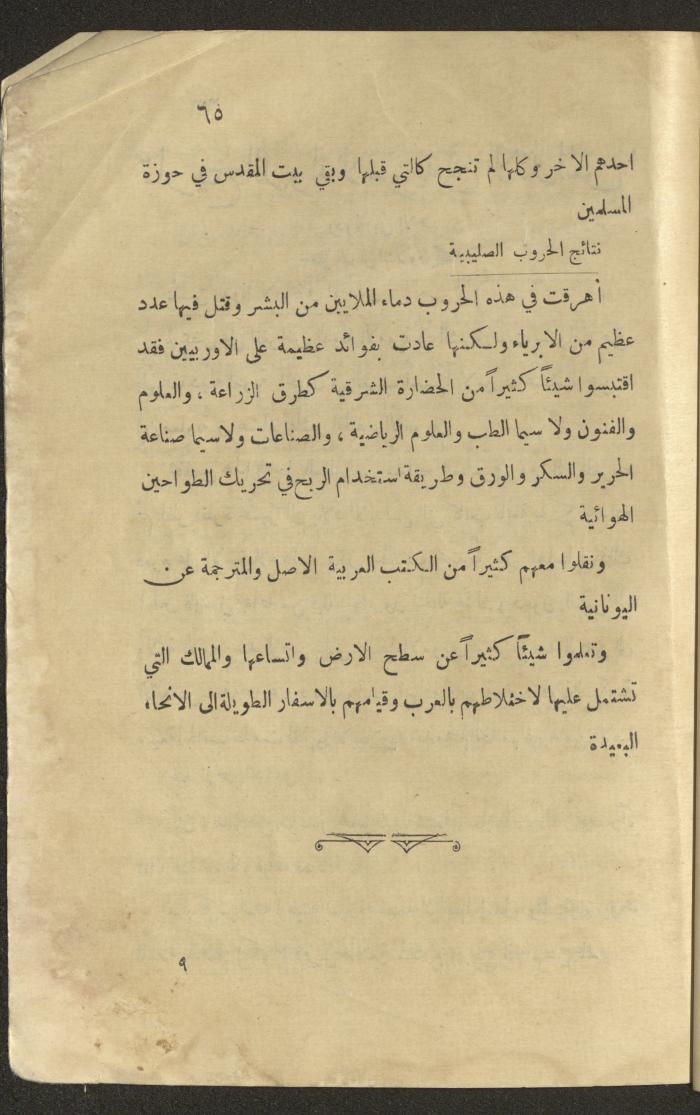 ٦٥
احدهم الاخر وكلها لم تنجح كالتي قبلها وبقي بيت المقدس في حوزة
المسلمين
نتائج الحروب الصليبية
أهرقت في هذه الحروب دماء الملايين من البشر وقتل فيها عدد
عظيم من الابرياء ولكنها عادت بفوائد عظيمة على الاوربيين فقد
اقتبسوا شيئاً كثيراً من الحضارة الشرقية كطرق الزراعة ، والعلوم
والفنون ولا سيما الطب والعلوم الرياضية ، والصناعات ولاسيما صناعة
الحرير والسكر والورق وطريقة استخدام الريح في تحريك الطواحين
الهوائية
ونقلوا معهم كثيراً من الكتب العربية الاصل والمترجمة عن
اليونانية
وتعلموا شيئاً كثيراً عن سطح الارض واتساعها والممالك التي
تشتمل عليها لاختلاطهم بالعرب وقيامهم بالاسفار الطويلة الى الانحاء
البعيدة
٩